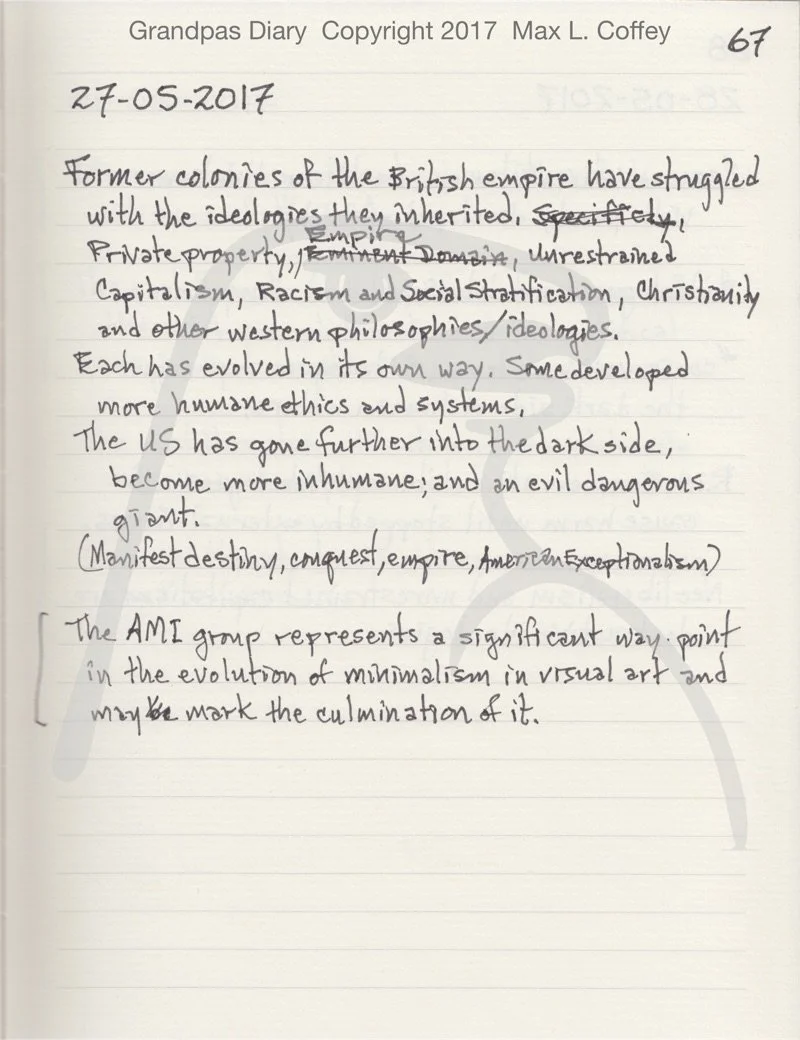 Grandpas Diary Copyright 2017 Max L. Coffey
67
27-05-2017
Former colonies of the British empire have struggled
with the ideologies they inherited. Specificly,
Empire
Private property, Eminent Domain, Unrestrained
Capitalism, Racism and Social Stratification, Christianity
and other western philosophies/ideologies.
Each has evolved in its own way. Some developed
more humane ethics and systems.
The US has gone further into the dark side,
become more inhumane; and an evil dangerous
giant.
(Manifest destiny, conquest, empire, American Exceptionalism)
The AMI group represents a significant way-point
in the evolution of minimalism in visual art and
may be mark the culmination of it.